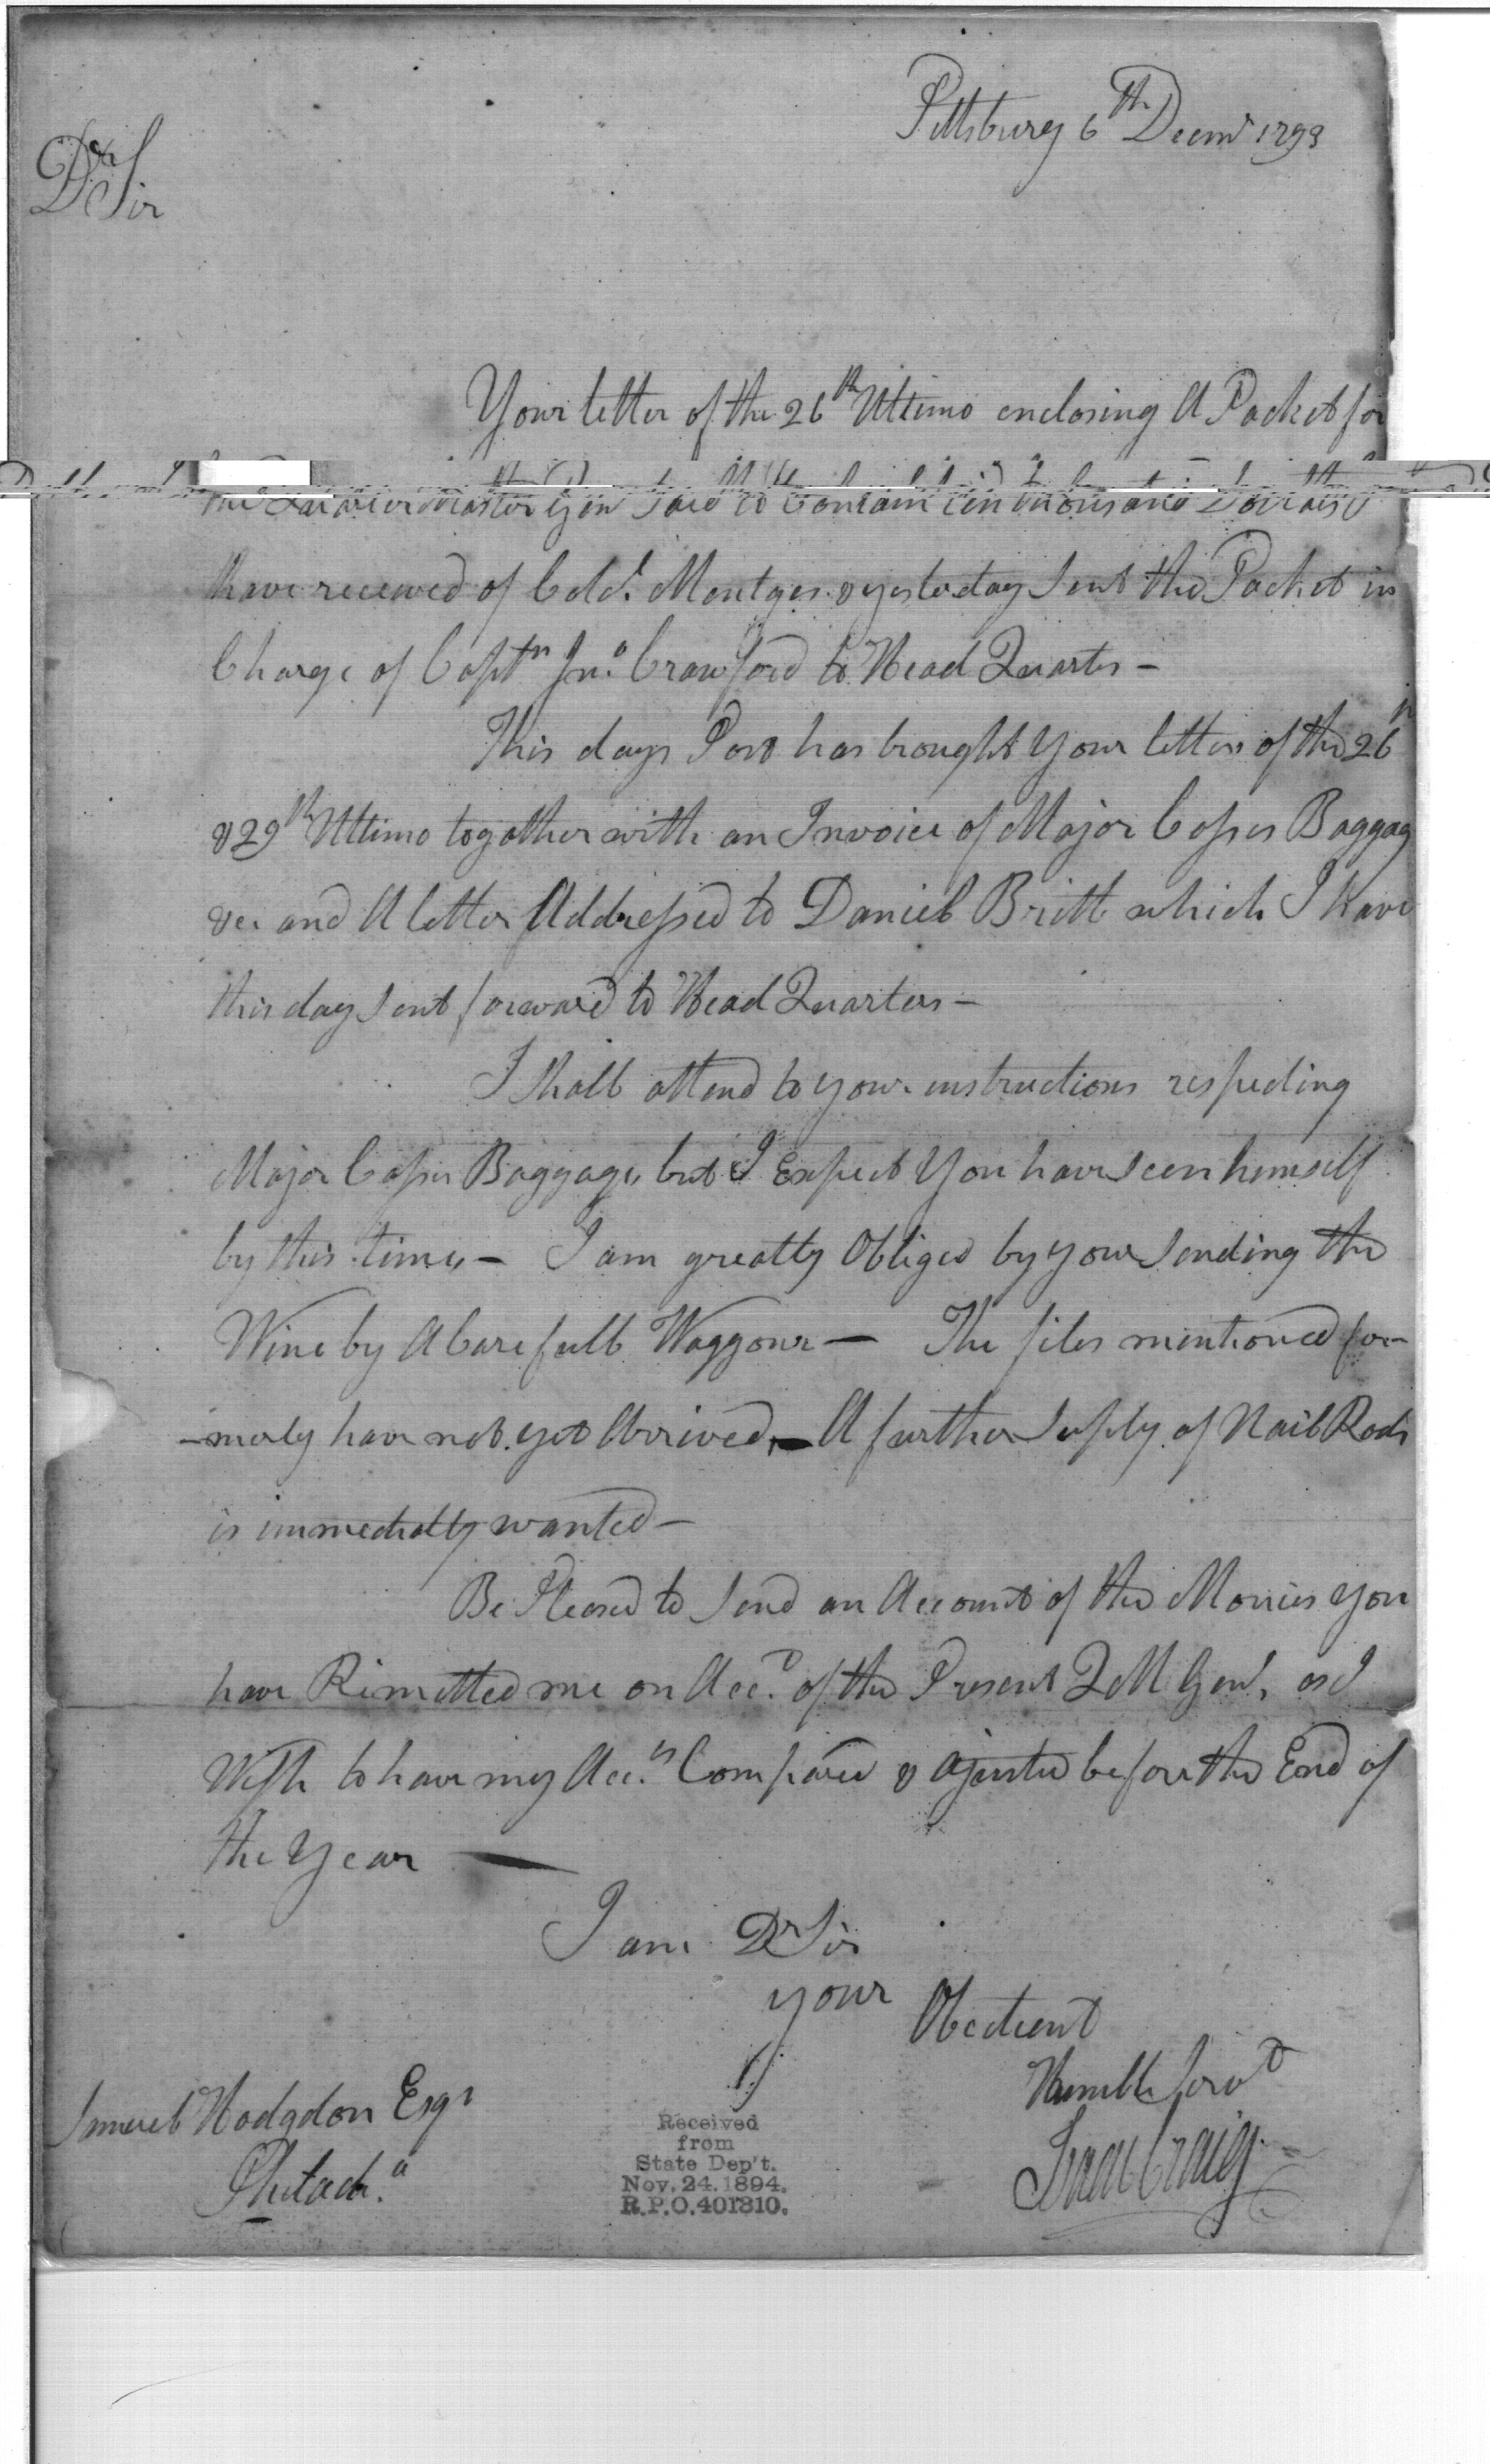 Pittsburg 6th Decemr 1793
Dr Sir
Your letter of the 26th Ultimo enclosing A Packet for
the Quartermaster Genl Said to Contain ten thousand Dollars I
have received of Cold. Mentges & yesterday Sent the Packet in
Charge of Captn Jno. Crawford to Head Quarters -
This days Post has brought Your letters of the 26th
& 29th Ultimo together with an Invoice of Major Cass's Baggag
&c. and A letter Addressed to Daniel Britt which I have
this day Sent forward to Head Quarters -
I Shall attend to your instructions respecting
Major Cass's Baggage, but I Expect You have Seen himself
by this time, - I am greatly Obliged by your Sending the
Wine by A Carefull Waggoner - The files mentioned for-
-merly have not yet Arrived, - A further Suply of Nail Rods
is immediatly wanted -
Be Pleased to Send an Account of the Monies you
have Remitted me on Acct. of the Present QM Genl, as I
Wish to have my Accts. Compared & ajusted before the End of
the Year -
I am Dr Sir
your
Obedient
Humble Servt
Isaac Craig
Samuel Hodgdon Esqr
Philada.
Received
from
State Dep't.
Nov. 24. 1894.
R.P.O. 401310.